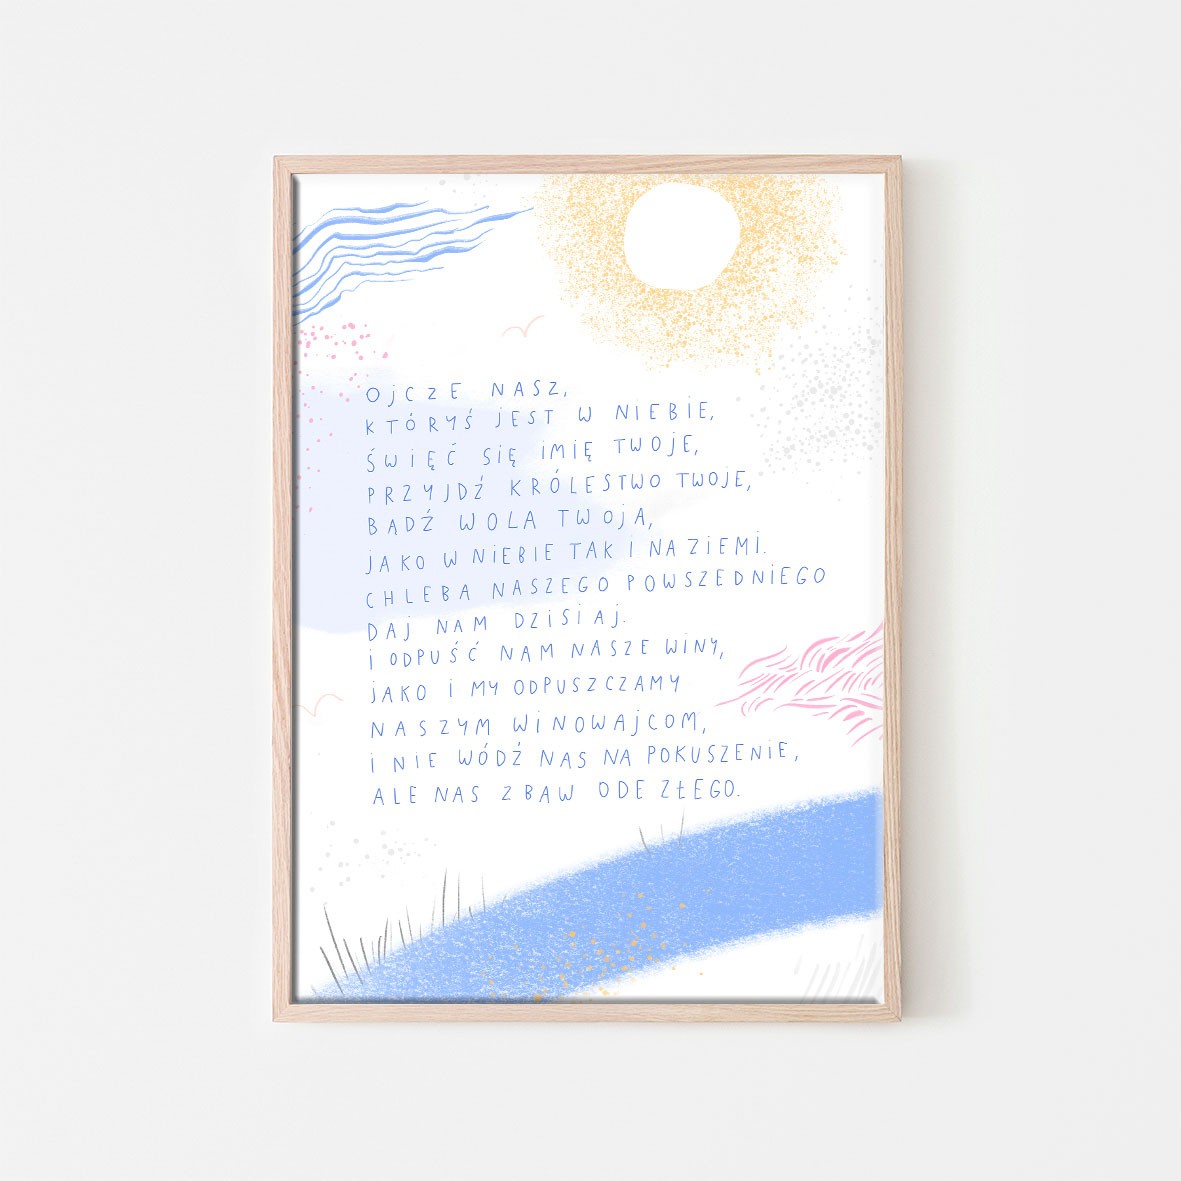 OJCZE NASZ,
KTÓRYŚ JEST W NIEBIE,
ŚWIĘĆ SIĘ IMIĘ TWOJE,
PRZYJDŹ KRÓLESTWO TWOJE,
BĄDŹ WOLA TWOJA,
JAKO W NIEBIE TAK I NA ZIEMI.
CHLEBA NASZEGO POWSZEDNIEGO
DAJ NAM DZISIAJ.
I ODPUŚĆ NAM NASZE WINY,
JAKO I MY ODPUSZCZAMY
NASZYM WINOWAJCOM,
I NIE WÓDŹ NAS NA POKUSZENIE,
ALE NAS ZBAW ODE ZŁEGO.